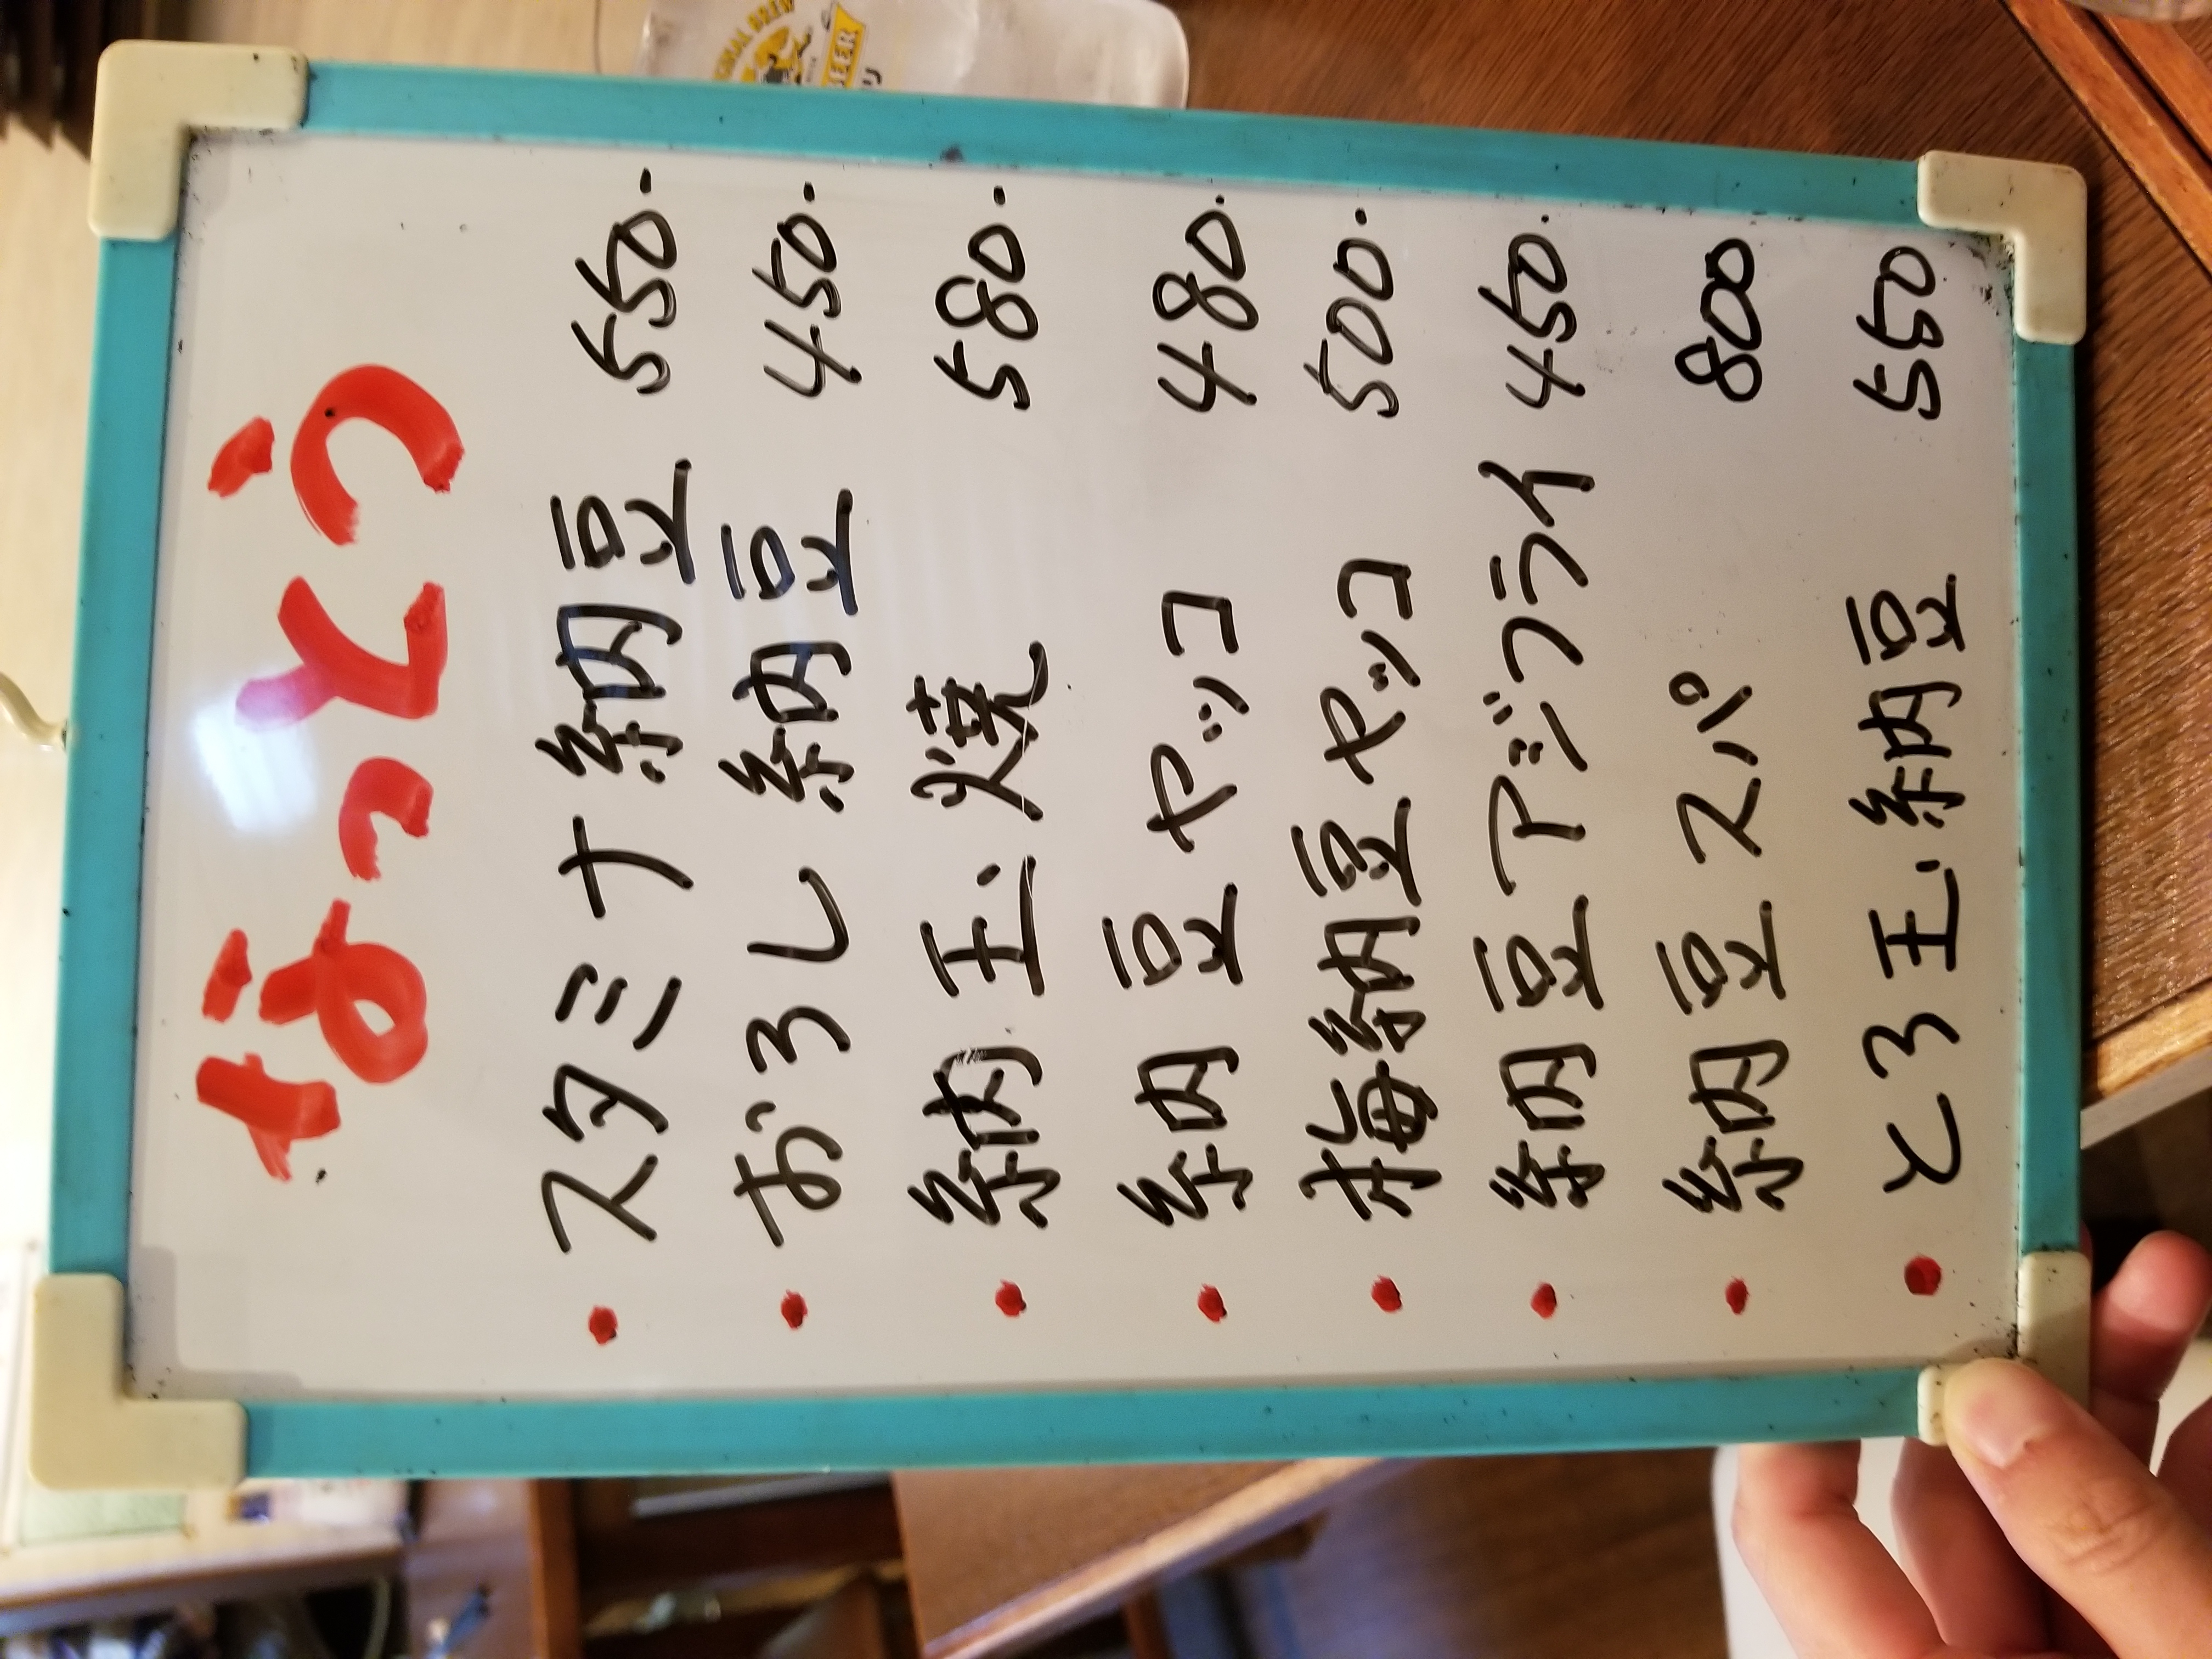 なっとう
・スタミナ納豆 550-
・おろし納豆 450-
・納玉焼 580-
・納豆ヤッコ 480-
・梅納豆ヤッコ 500-
・納豆アジフライ 450-
・納豆スパ 800
・とろ玉納豆 550
BEER